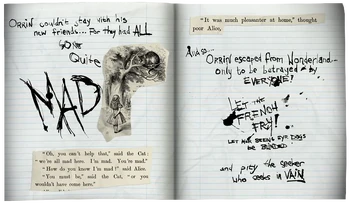 ORRIN couldn't stay with his
new friends... For they had ALL
GONE
Quite
MAD
"Oh, you can't help that," said the Cat:
"we're all mad here. I'm mad. You're mad."
"How do you know I'm mad?" said Alice.
"You must be," said the Cat, "or you
wouldn't have come here."
"It was much pleasanter at home," thought
poor Alice,
And so...
Orrin escaped from Wonderland...
only to be betrayed by
EVERYONE!
LET THE
FRENCH
FRY!
LET
DOGS
BE
and pity the seeker
who seeks in VAIN